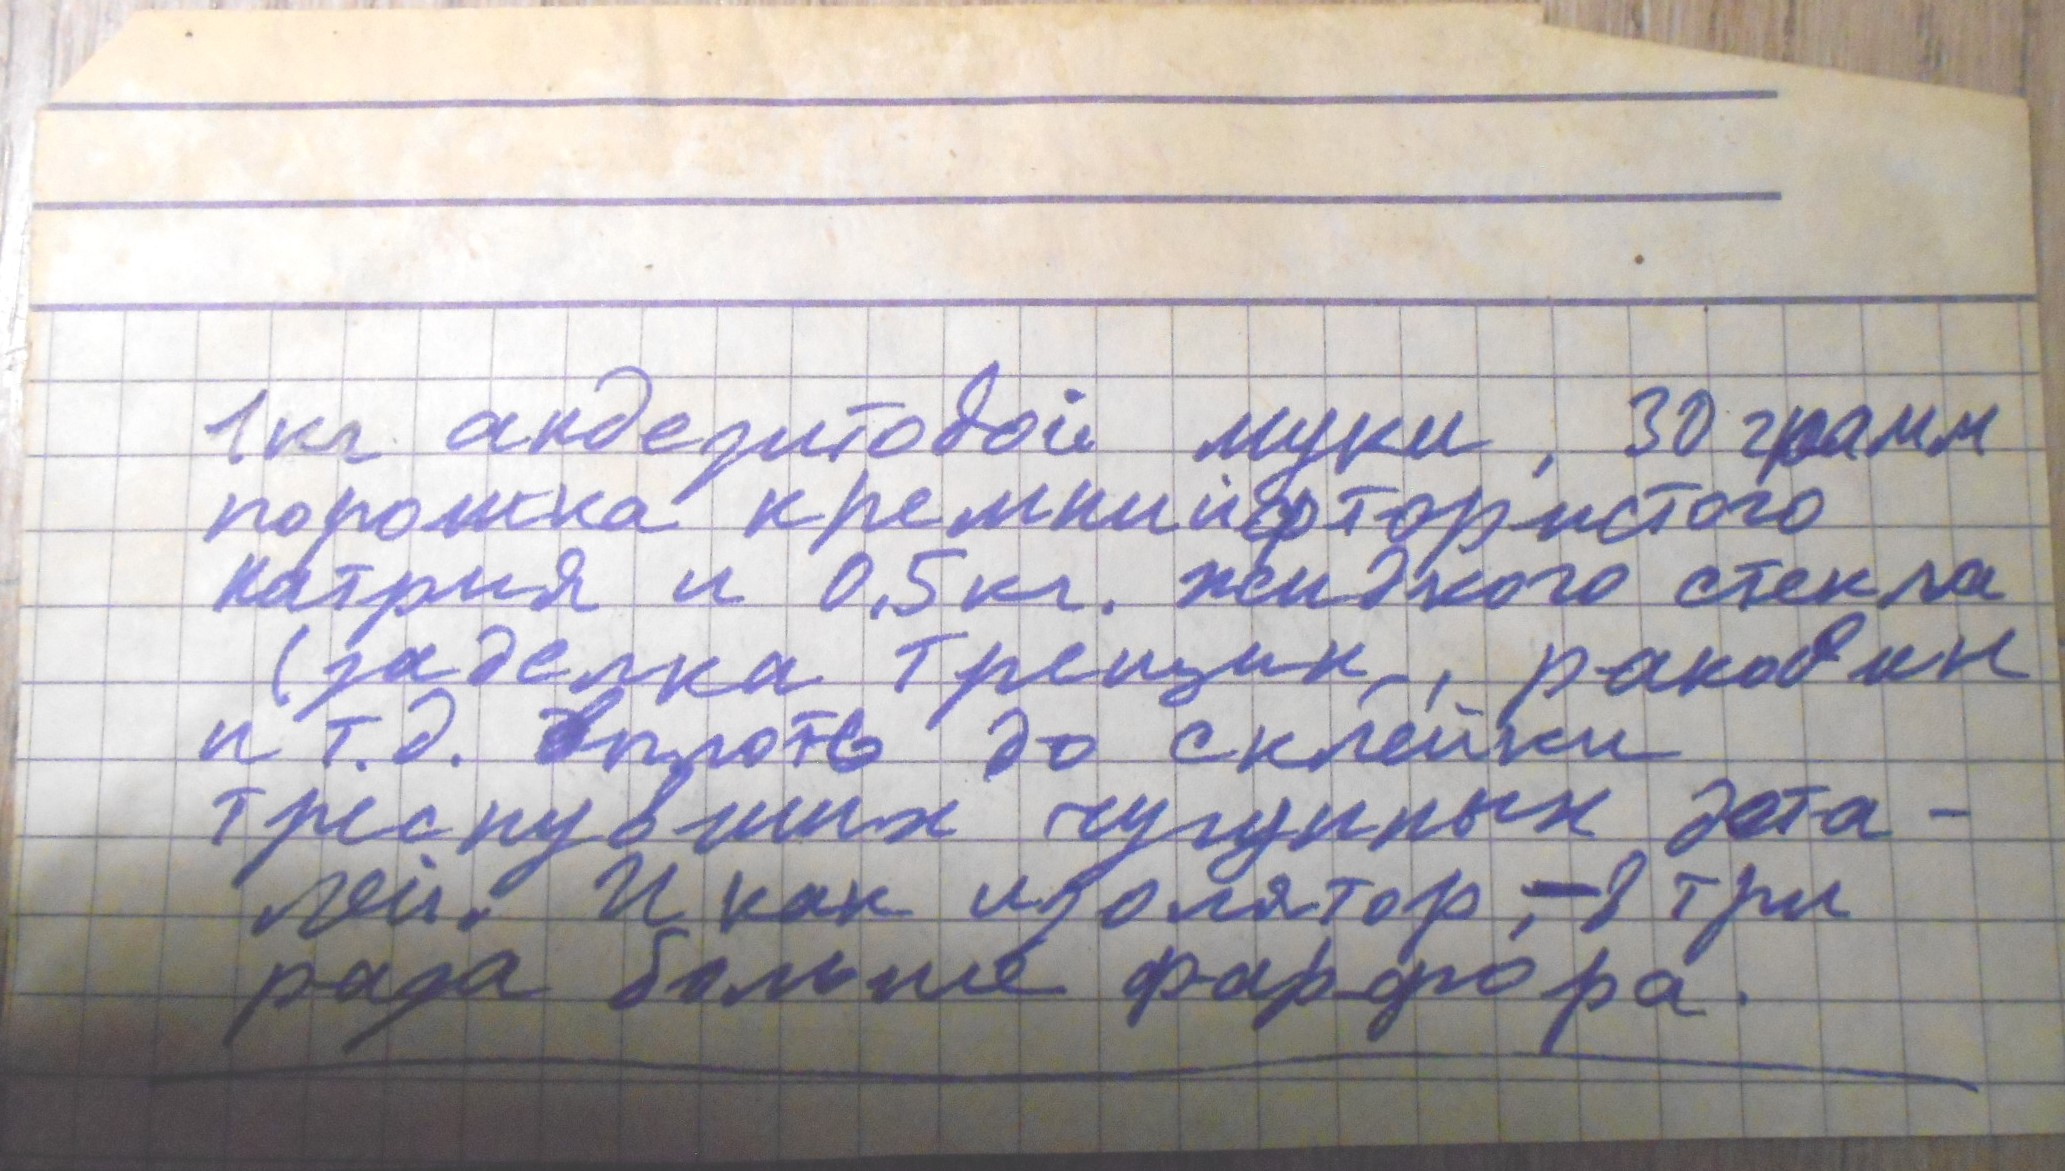 1кг андезитовой муки, 30 грамм
порошка кремнийфтористого
натрия и 0,5 кг. жидкого стекла
(заделка трещин, раковин
и т.д. вплоть до склейки
треснувших чугунных дета-
лей. И как изолятор, - в три
раза больше фарфора.